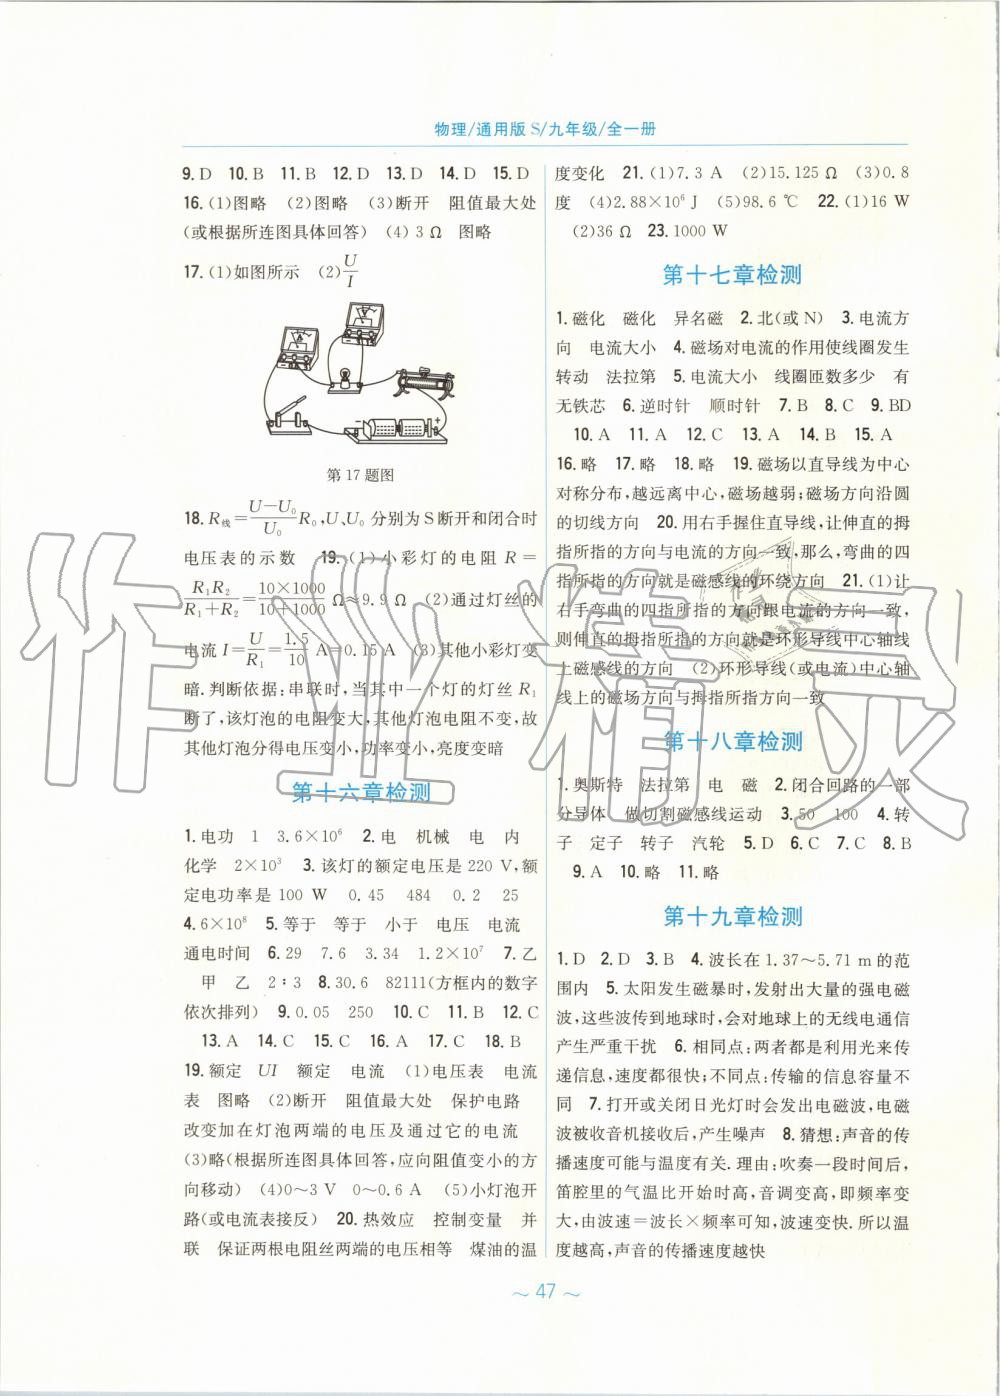 物理/通用版 S/九年级/全一册
9. D 10. B 11. B 12. D 13. D 14. D 15. D
16. (1)图略 (2)图略 (3)断开 阻值最大处
(或根据所连图具体回答) (4) 3 Ω 图略
17. (1)如图所示 (2)U/I
第 17 题图
18. R线=(U-U₀)/U₀ R₀,U、U₀ 分别为 S 断开和闭合时
电压表的示数 19. (1)小彩灯的电阻 R=
R₁R₂/(R₁+R₂)=(10×1000)/(10+1000) Ω≈9.9 Ω (2)通过灯丝的
电流 I=U/R₁=1.5/10 A=0.15 A (3)其他小彩灯变
暗.判断依据:串联时,当其中一个灯的灯丝 R₁
断了,该灯泡的电阻变大,其他灯泡电阻不变,故
其他灯泡分得电压变小,功率变小,亮度变暗
第十六章检测
1. 电功 1 3.6×10⁶ 2. 电 机械 电 内
化学 2×10³ 3. 该灯的额定电压是 220 V,额
定电功率是 100 W 0.45 484 0.2 25
4. 6×10⁸ 5. 等于 等于 小于 电压 电流
通电时间 6. 29 7.6 3.34 1.2×10⁷ 7. 乙
甲 乙 2∶3 8. 30.6 82111(方框内的数字
依次排列) 9. 0.05 250 10. C 11. B 12. C
13. A 14. C 15. C 16. A 17. C 18. B
19. 额定 UI 额定 电流 (1)电压表 电流
表 图略 (2)断开 阻值最大处 保护电路
改变加在灯泡两端的电压及通过它的电流
(3)略(根据所连图具体回答,应向阻值变小的方
向移动) (4)0～3 V 0～0.6 A (5)小灯泡开
路(或电流表接反) 20. 热效应 控制变量 并
联 保证两根电阻丝两端的电压相等 煤油的温
度变化 21. (1)7.3 A (2)15.125 Ω (3)0.8
度 (4)2.88×10⁶ J (5)98.6 ℃ 22. (1)16 W
(2)36 Ω 23. 1000 W
第十七章检测
1. 磁化 磁化 异名磁 2. 北(或 N) 3. 电流方
向 电流大小 4. 磁场对电流的作用使线圈发生
转动 法拉第 5. 电流大小 线圈匝数多少 有
无铁芯 6. 逆时针 顺时针 7. B 8. C 9. BD
10. A 11. A 12. C 13. A 14. B 15. A
16. 略 17. 略 18. 略 19. 磁场以直导线为中心
对称分布,越远离中心,磁场越弱;磁场方向沿圆
的切线方向 20. 用右手握住直导线,让伸直的拇
指所指的方向与电流的方向一致,那么,弯曲的四
指所指的方向就是磁感线的环绕方向 21. (1)让
右手弯曲的四指所指的方向跟电流的方向一致,
则伸直的拇指所指的方向就是环形导线中心轴线
上磁感线的方向 (2)环形导线(或电流)中心轴
线上的磁场方向与拇指所指方向一致
第十八章检测
1. 奥斯特 法拉第 电 磁 2. 闭合回路的一部
分导体 做切割磁感线运动 3. 50 100 4. 转
子 定子 转子 汽轮 5. D 6. C 7. C 8. B
9. A 10. 略 11. 略
第十九章检测
1. D 2. D 3. B 4. 波长在 1.37～5.71 m 的范
围内 5. 太阳发生磁暴时,发射出大量的强电磁
波,这些波传到地球时,会对地球上的无线电通信
产生严重干扰 6. 相同点:两者都是利用光来传
递信息,速度都很快;不同点:传输的信息容量不
同 7. 打开或关闭日光灯时会发出电磁波,电磁
波被收音机接收后,产生噪声 8. 猜想:声音的传
播速度可能与温度有关. 理由:吹奏一段时间后,
笛腔里的气温比开始时高,音调变高,即频率变
大,由波速=波长×频率可知,波速变快. 所以温
度越高,声音的传播速度越快
～ 47 ～
作业精灵